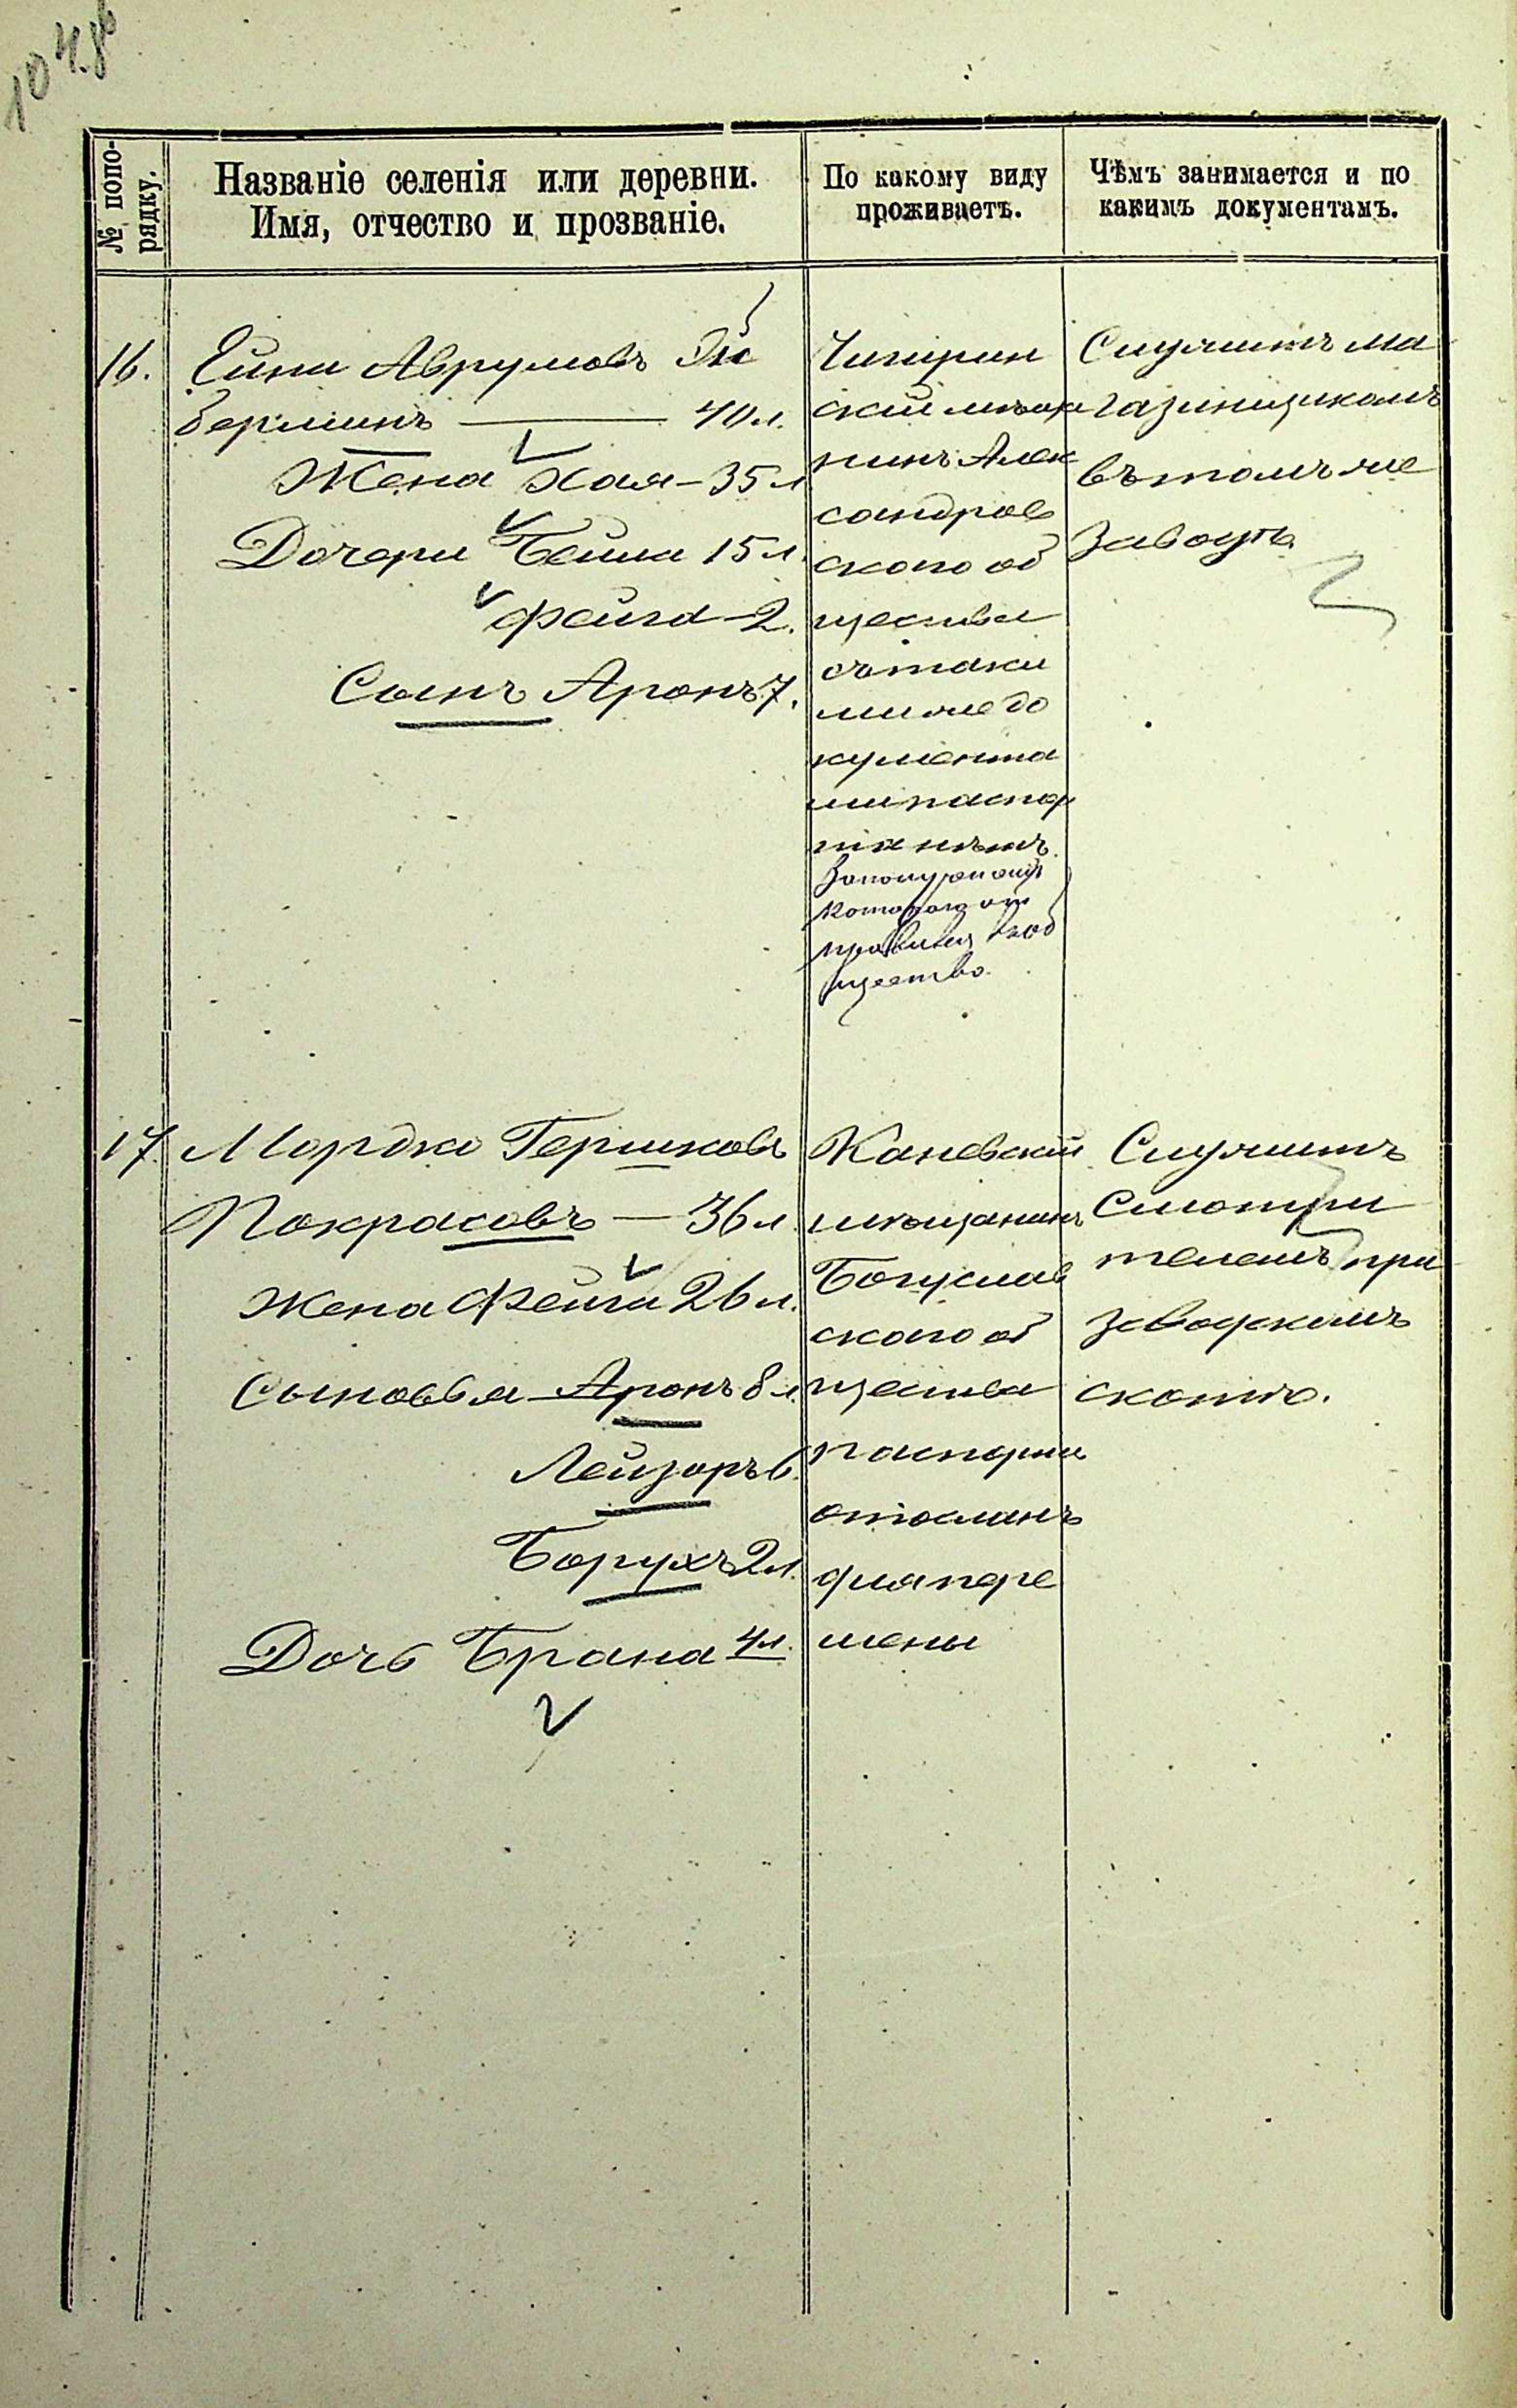 1048
№ попо-
рядку.
Названіе селенія или деревни.
Имя, отчество и прозваніе.
По какому виду
проживаетъ.
Чѣмъ занимается и по
какимъ документамъ.
16.
Ейни Аврумовъ
берминъ — 40 л.
Жена Хая – 35 л
Дочери Бейла 15 л.
Фейга – 2.
Сынъ Аронъ 7.
Чигирин
скій мѣща
нинъ Алек
сандров
скаго об
щества
съ таки
ми же до
кумента
ми паспор
та нѣтъ.
щество.
Служитъ ма
газинщикомъ
въ томъ же
заводѣ.
17.
Мордко Гершковъ
Покрасовъ — 36 л.
Жена Фейга 26 л.
Сыновья Аронъ 8 л.
Лейзоръ 6.
Борухъ 2 л.
Дочь Брана 4 л.
Каневскій
мѣщанинъ
Богуслав
скаго об
щества
паспортъ
отосланъ
для пере
мены
Служитъ
Смотри
телемъ при
заводскомъ
скотѣ.